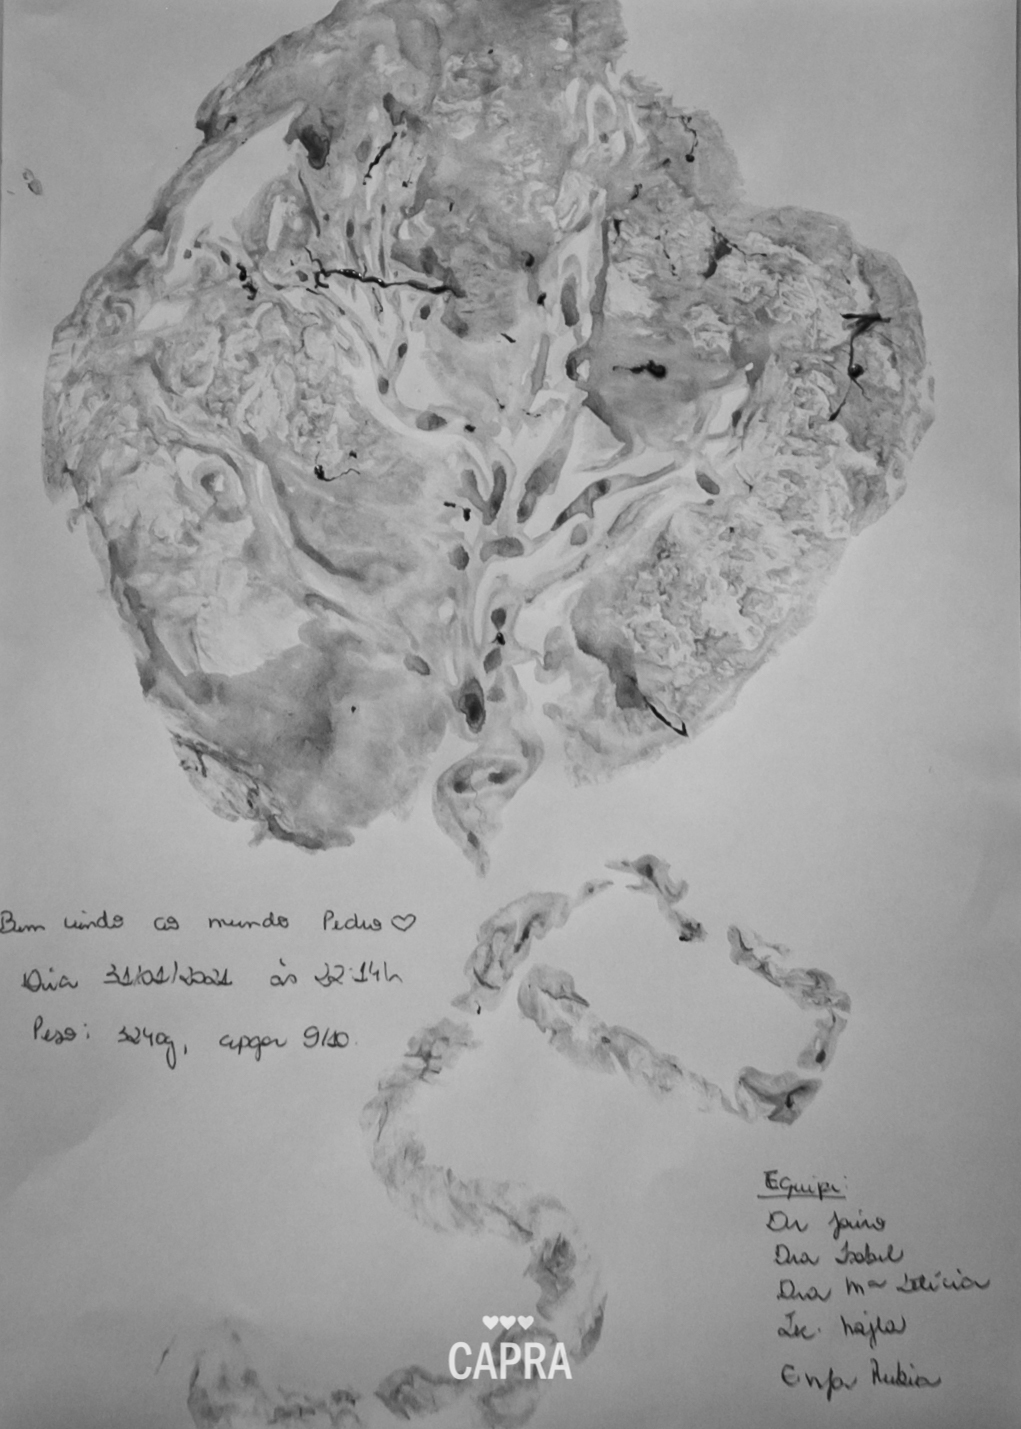 Bem vindo ao mundo Pedro ♡
Dia 31/01/2021 às 22:14h
Peso: 3240g, apgar 9/10.
Equipe:
Dr Jairo
Dra Isabel
Dra Mª Letícia
Téc. Najla
Enfa Rubia
CAPRA